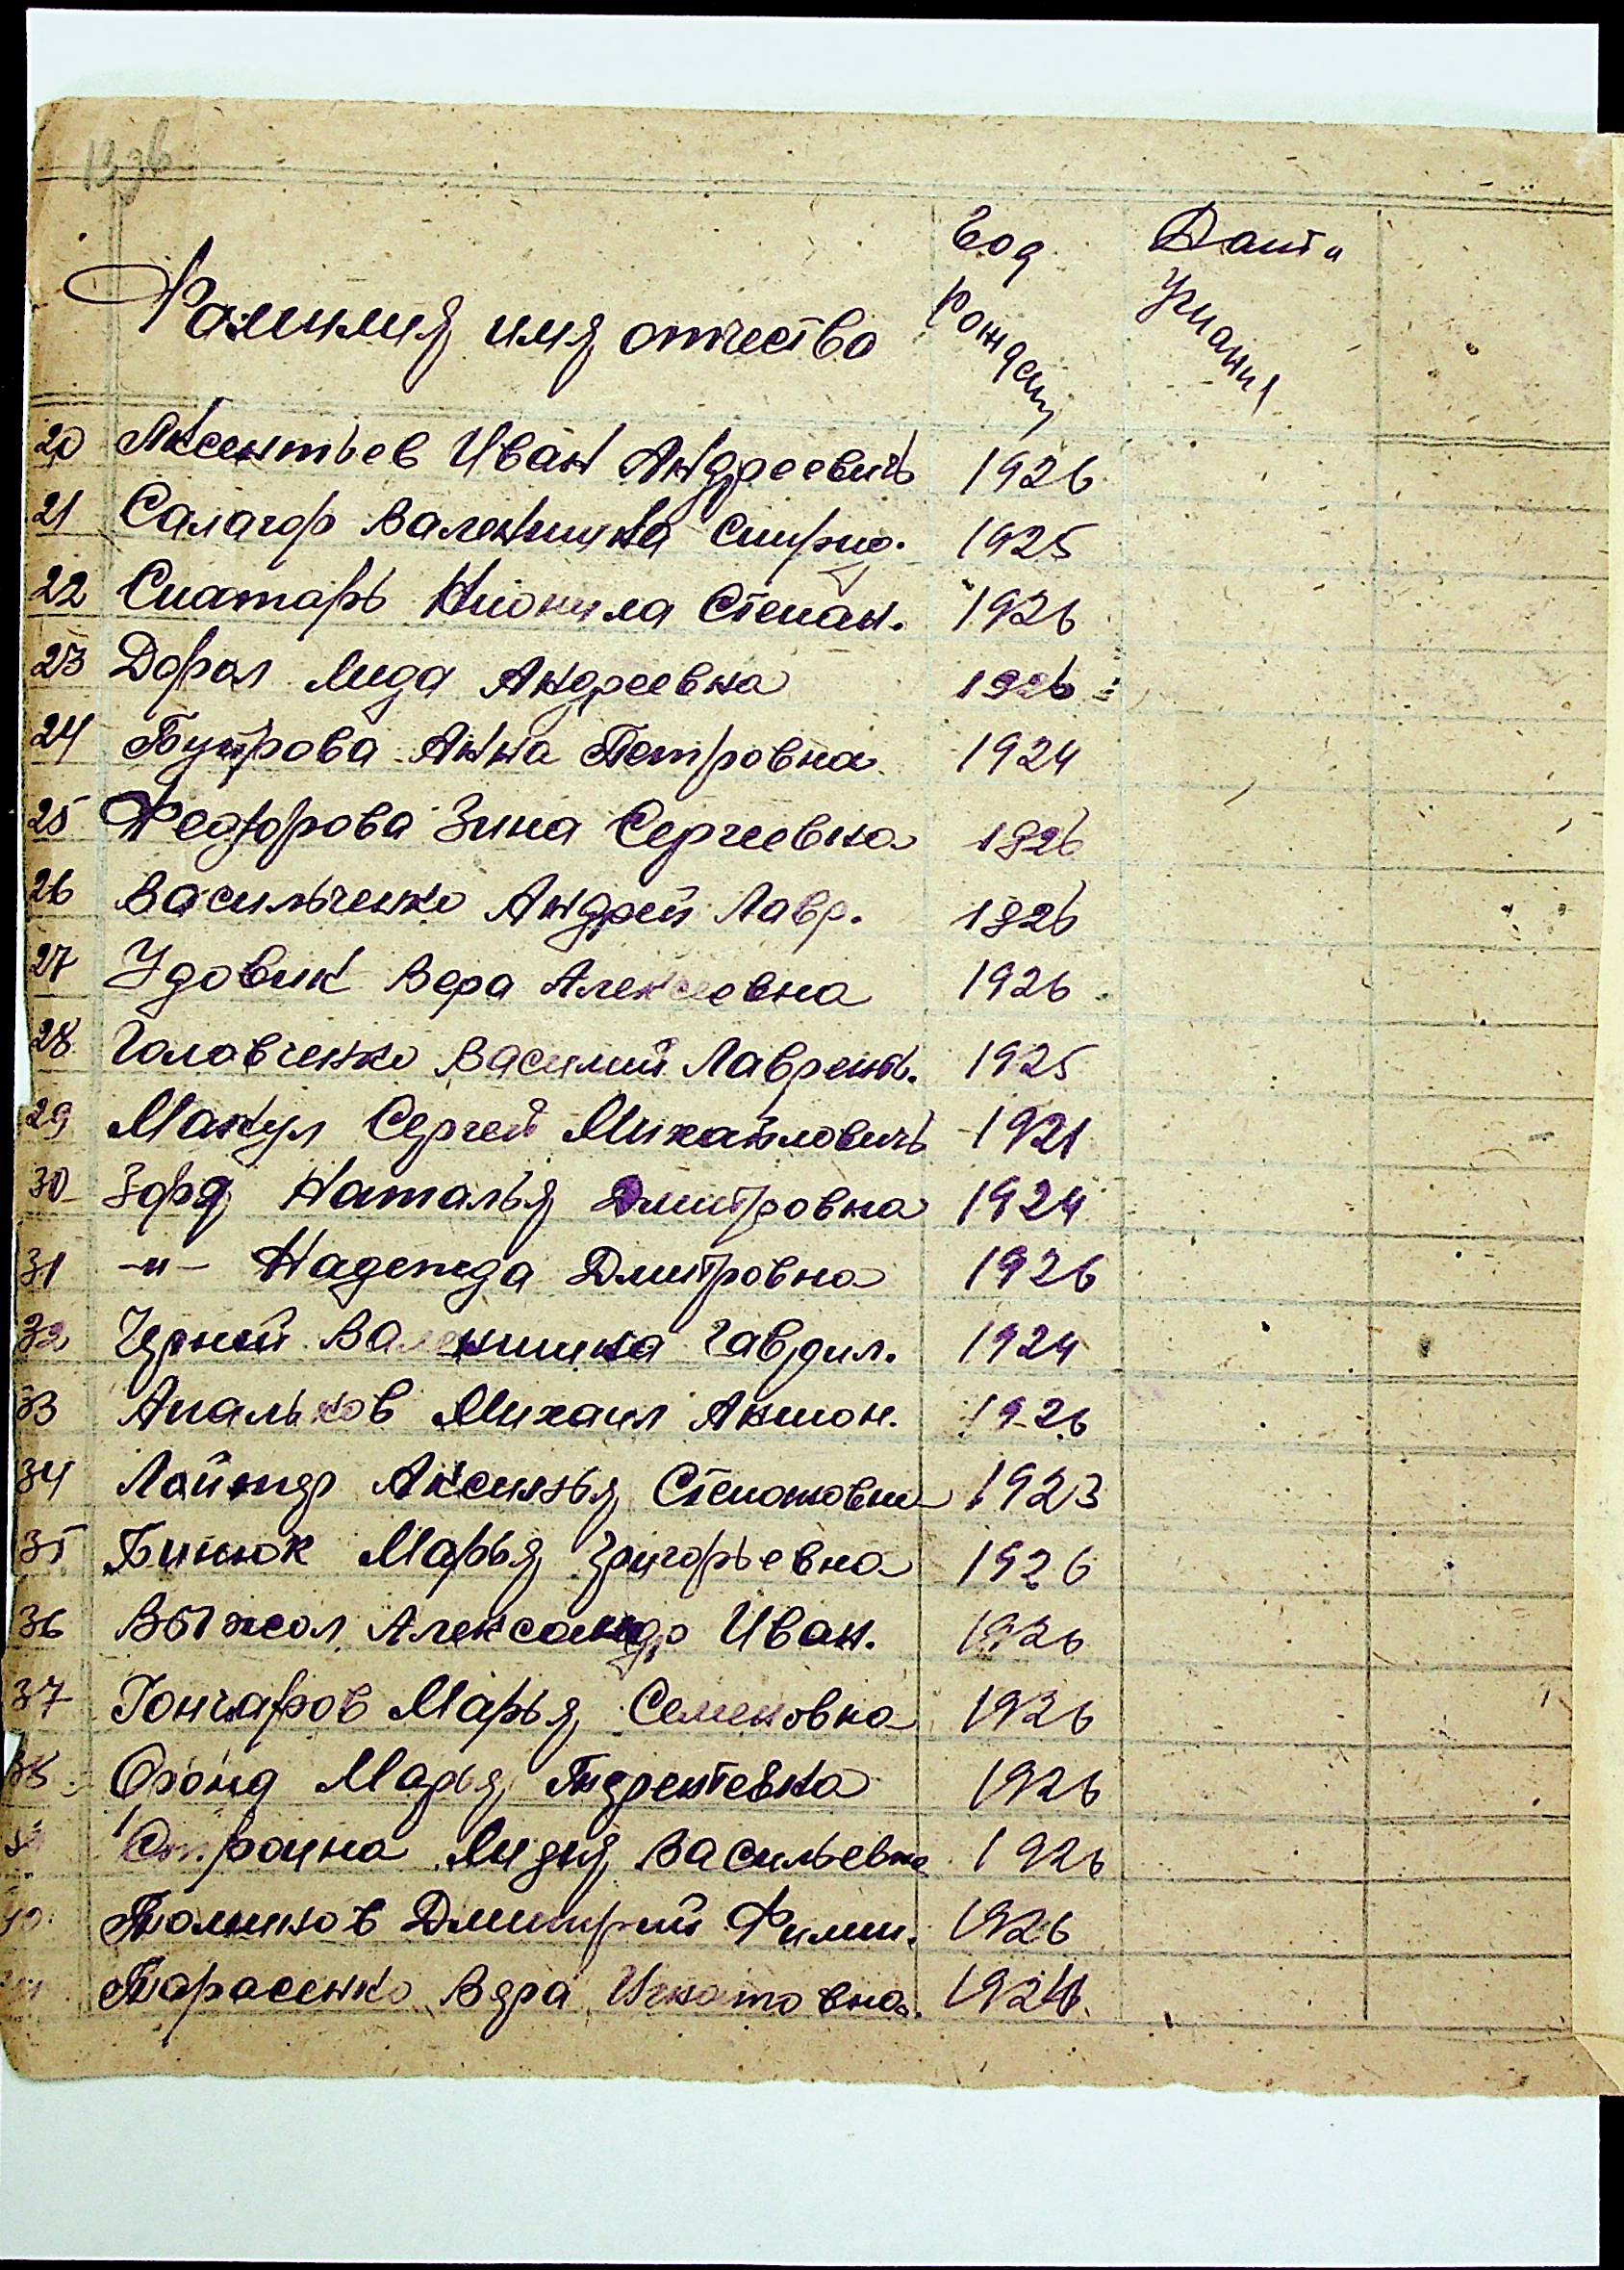 Год Дата
Фамилия имя отчество рождени угнания
20 Аксентьев Иван Андреевичь 1926
21 Салагор Валентина Спирид. 1925
22 Снатарь Нионила Степан. 1926
23 Дорол Лида Андреевна 1926
24 Бутрова Анна Петровна 1924
25 Федорова Зина Сергеевна 1926
26 Васильченко Андрей Лавр. 1926
27 Удовик Вера Алексеевна 1926
28 Головченко Василий Лаврент. 1925
29 Манул Сергей Михайловичь 1921
30 Зоря Наталья Дмитровна 1924
31 -"- Надежда Дмитровна 1926
32 Черней Валентина Гаврил. 1924
33 Апальков Михаил Антон. 1926
34 Аксинья Степановна 1923
35 Бинюк Марья Григорьевна 1926
36 Выжол Александр Иван. 1926
37 Гончаров Марья Семеновна 1926
38 Марья 1926
Лидия Васильевна 1926
Дмитрий Филип. 1926
Тарасенко Вера Игнатовна. 1924